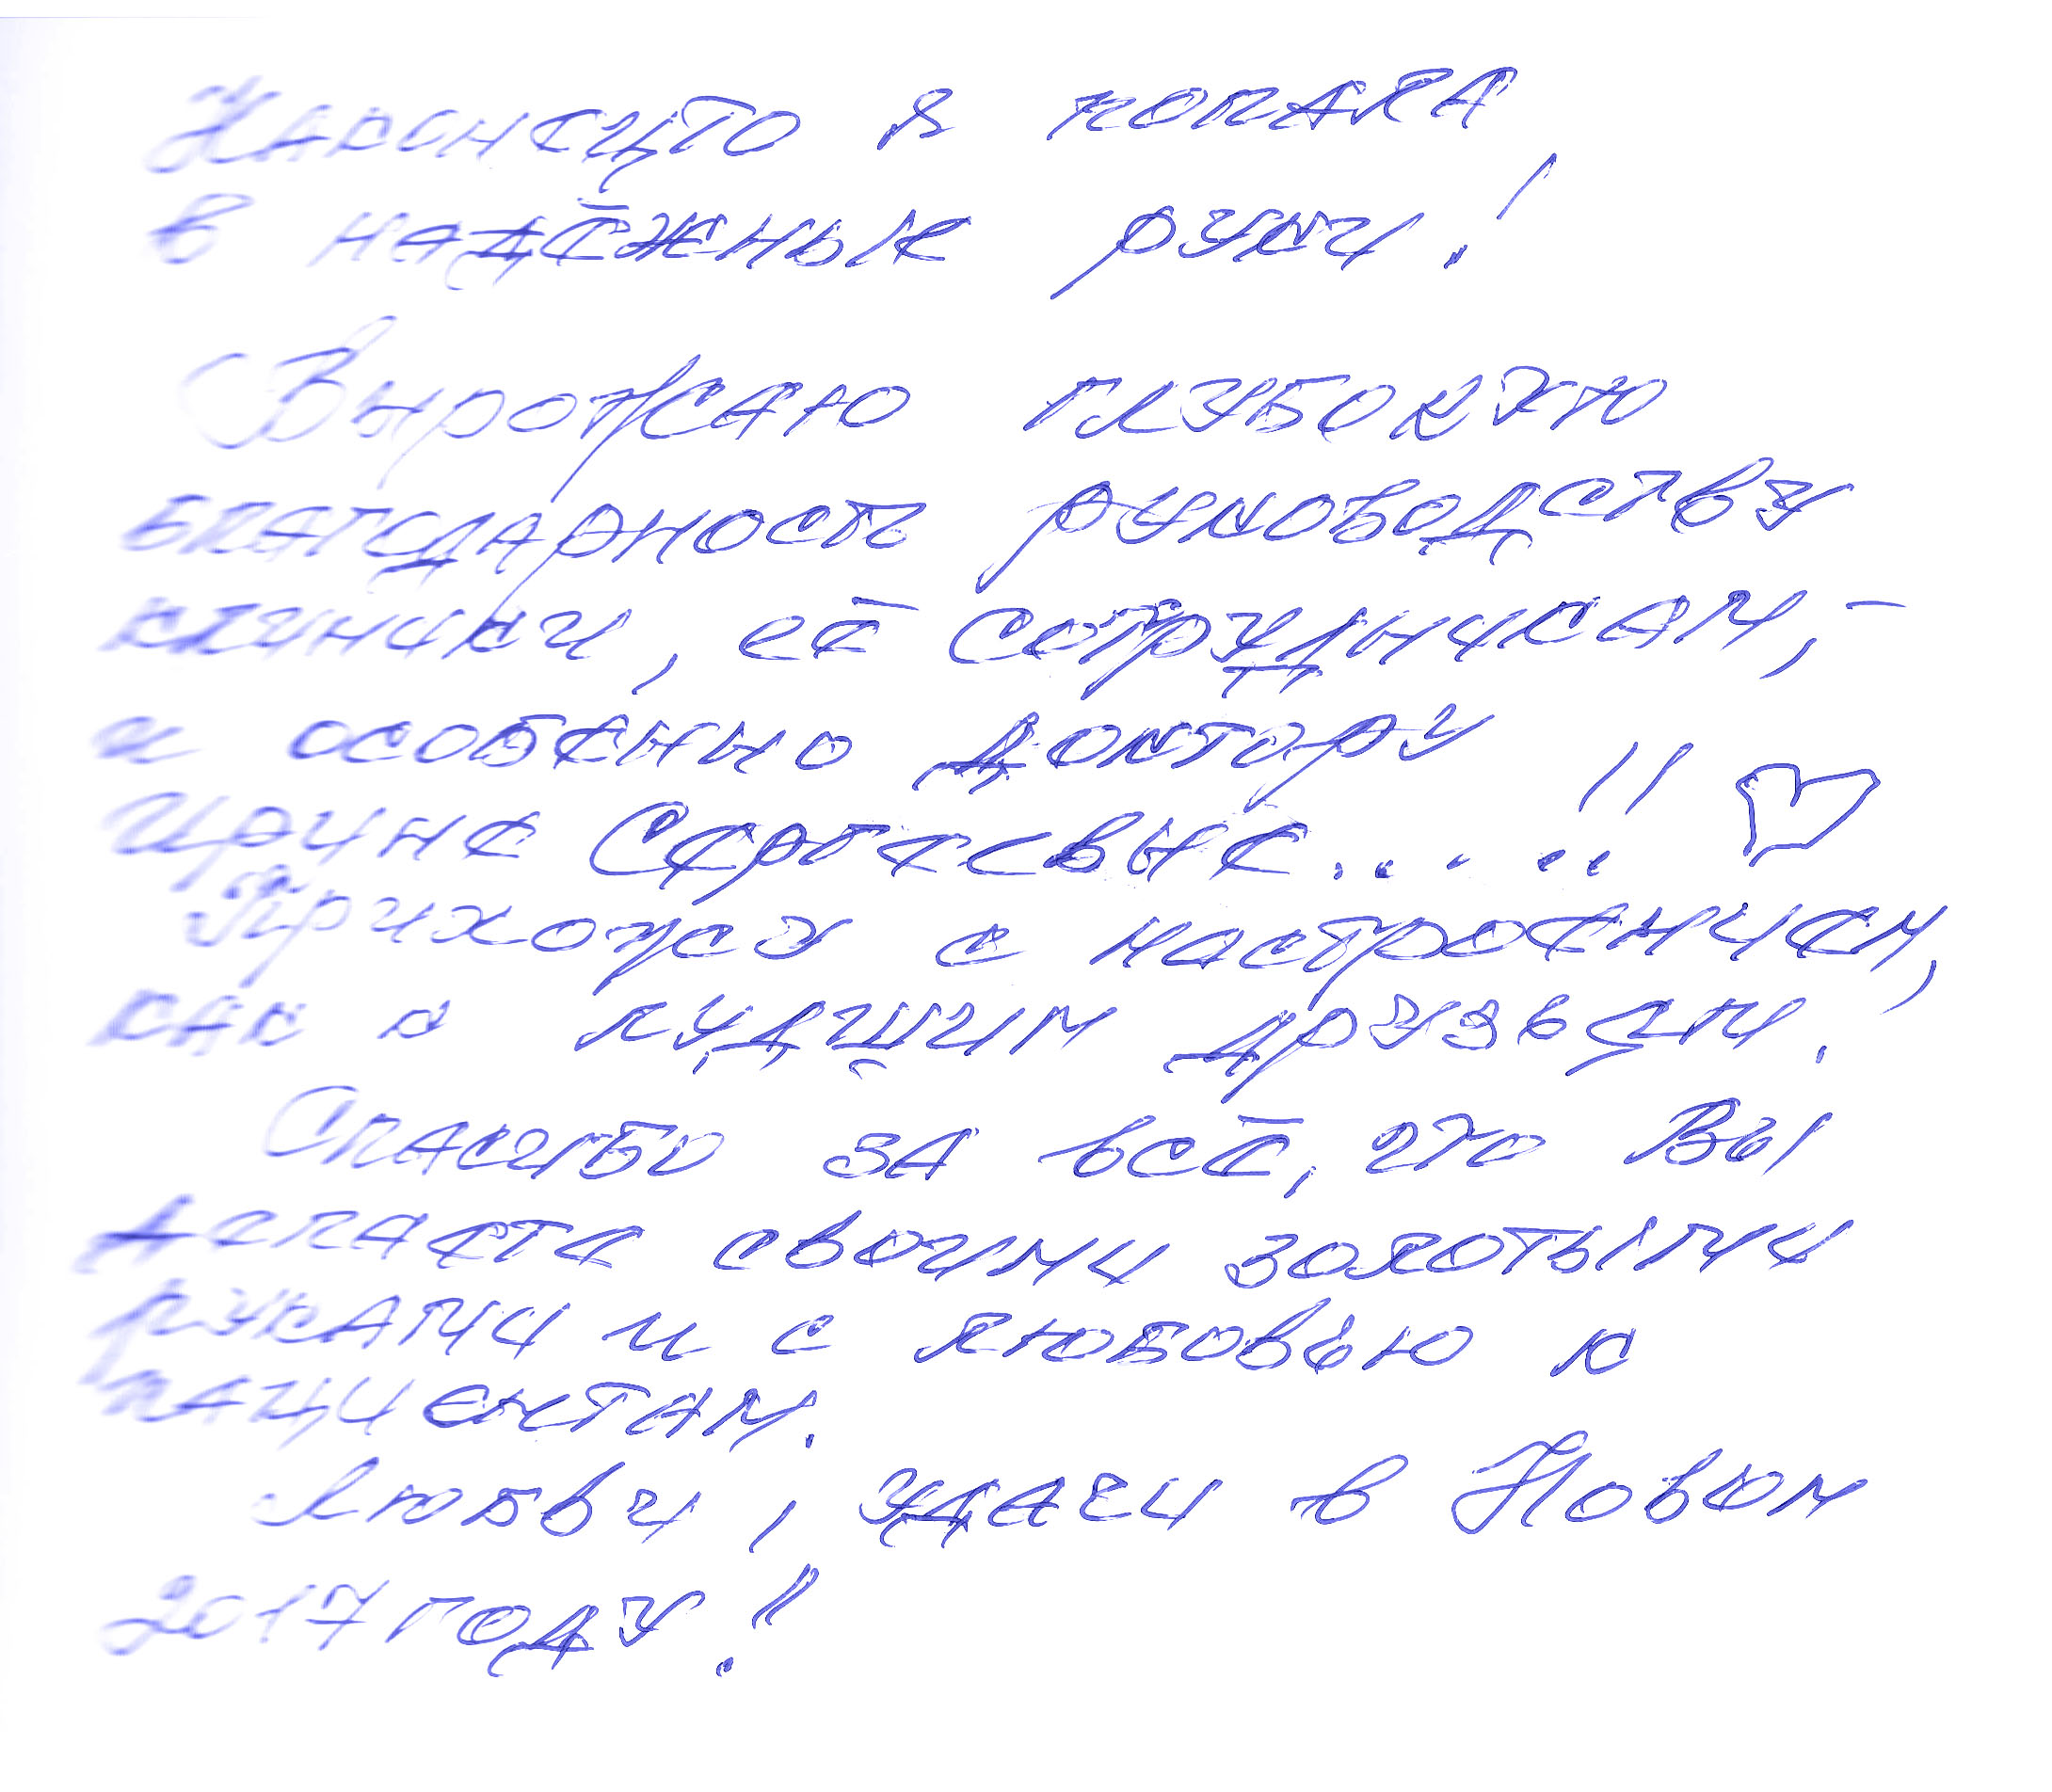 Наконецто я попала
в надёжные руки!
Выражаю глубокую
благодарность руководству
клиники, её сотрудникам, -
и особенно доктору
Ирине Сергеевне..... !! 
Прихожу с настроением,
как к лудшим друзьям.
Спасибо за всё, что Вы
делаете своими золотыми
руками и с любовью к
пациентам.
Любви, удачи в Новом
2017 году!!